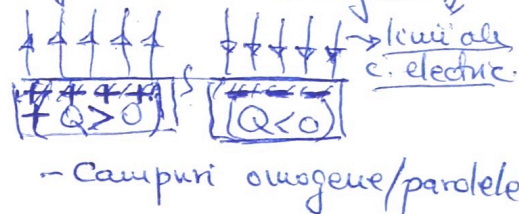 → linii ale
c. electric.
+ + + +
+ Q > 0
- - - -
Q < 0
- Campuri omogene/paralele